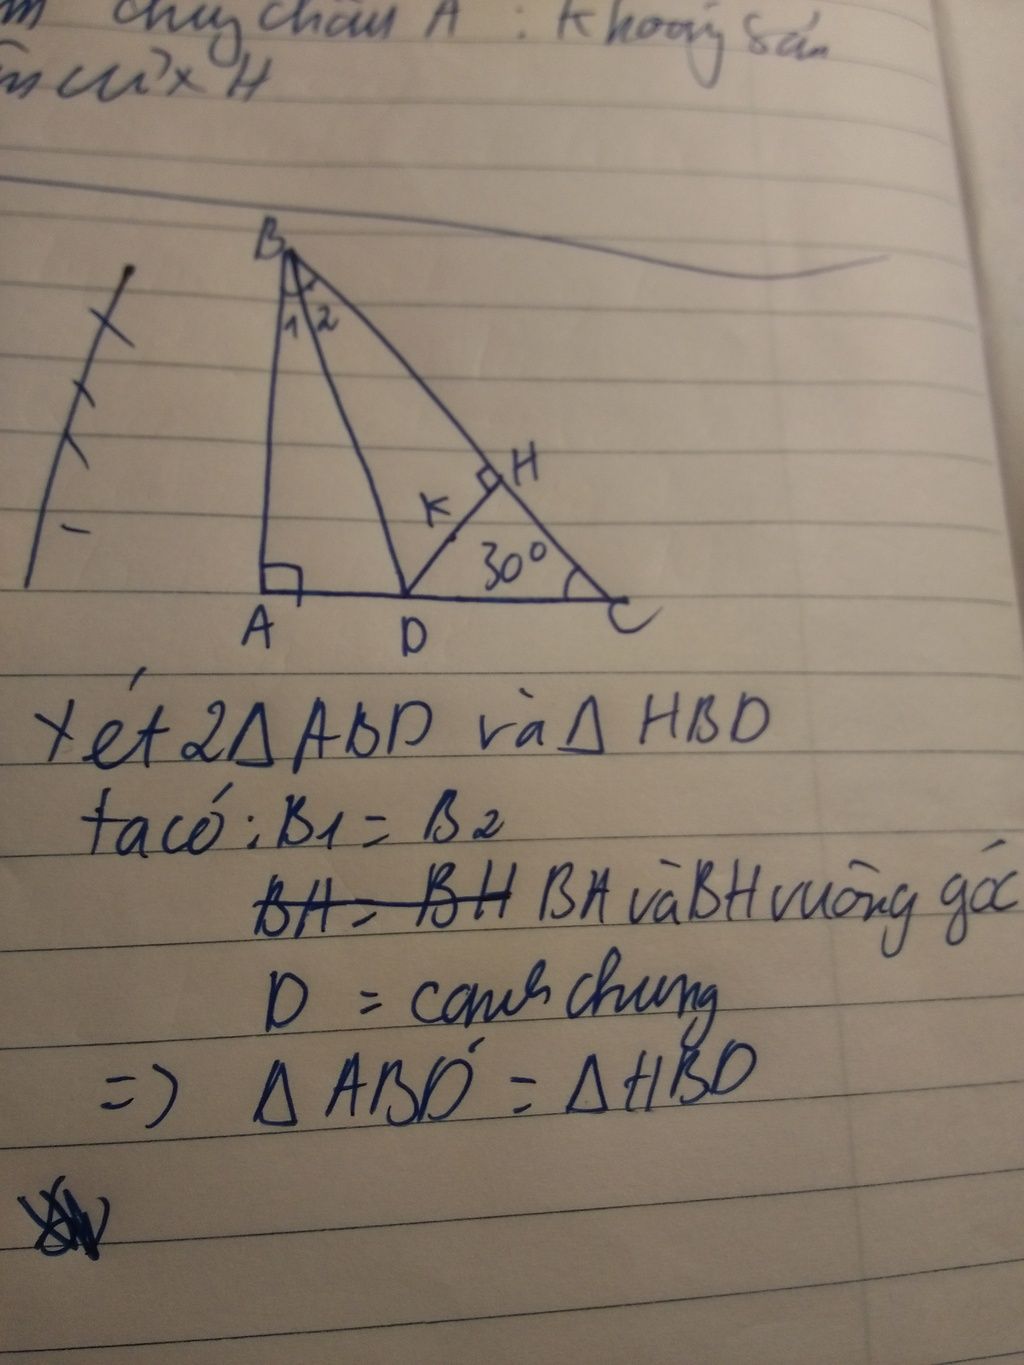 chuy châu A : Khoáng sản
B
1 2
H
K
30°
A D C
Xét 2Δ ABD và Δ HBD
ta có : B1 = B2
BH = BH BA và BH vuông góc
D = cạnh chung
=> Δ ABD = Δ HBD